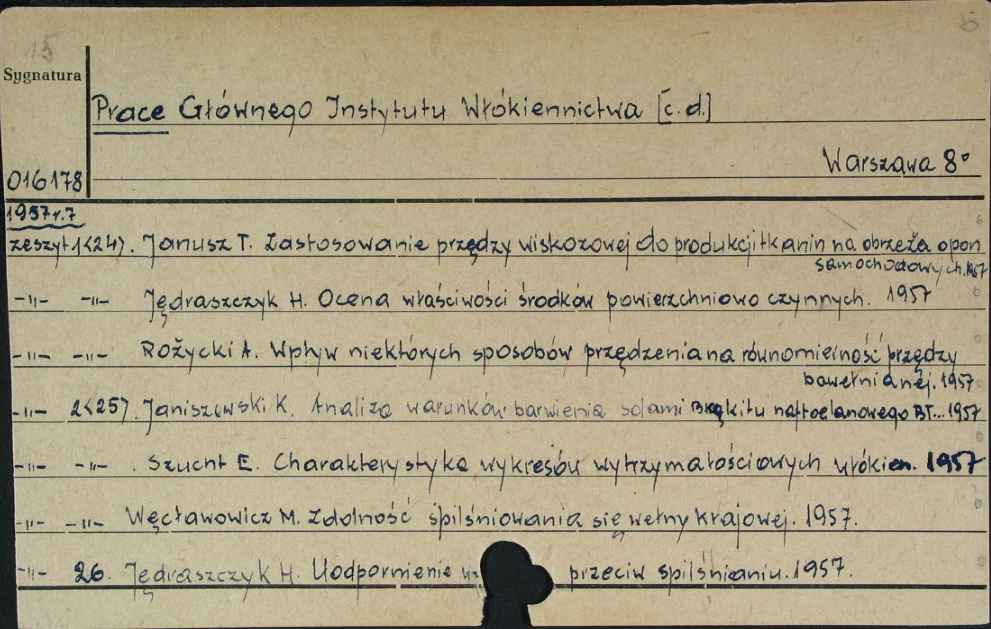 15 5
Sygnatura
Prace Głównego Instytutu Włókiennictwa [c.d.]
Warszawa 8°
016178
1957 r.7
zeszyt 1<24>. Janusz T. Zastosowanie przędzy wiskozowej do produkcji tkanin na obrzeża opon
samochodowych. 1957
-"- -"- Jędraszczyk H. Ocena właściwości środków powierzchniowo czynnych. 1957
-"- -"- Rożycki A. Wpływ niektórych sposobów przędzenia na równomierność przędzy
bawełnianej. 1957
-"- 2<25>. Janiszewski K. Analiza warunków barwienia solami naftoelanowego BT... 1957
-"- -"- . Szucht E. Charakterystyka wykresów wytrzymałościowych włókien. 1957
-"- -"- Węcławowicz M. Zdolność śpilśniowania się wełny krajowej. 1957.
-"- 26. Jędraszczyk H. Uodpornienie przeciw spilśnianiu. 1957.